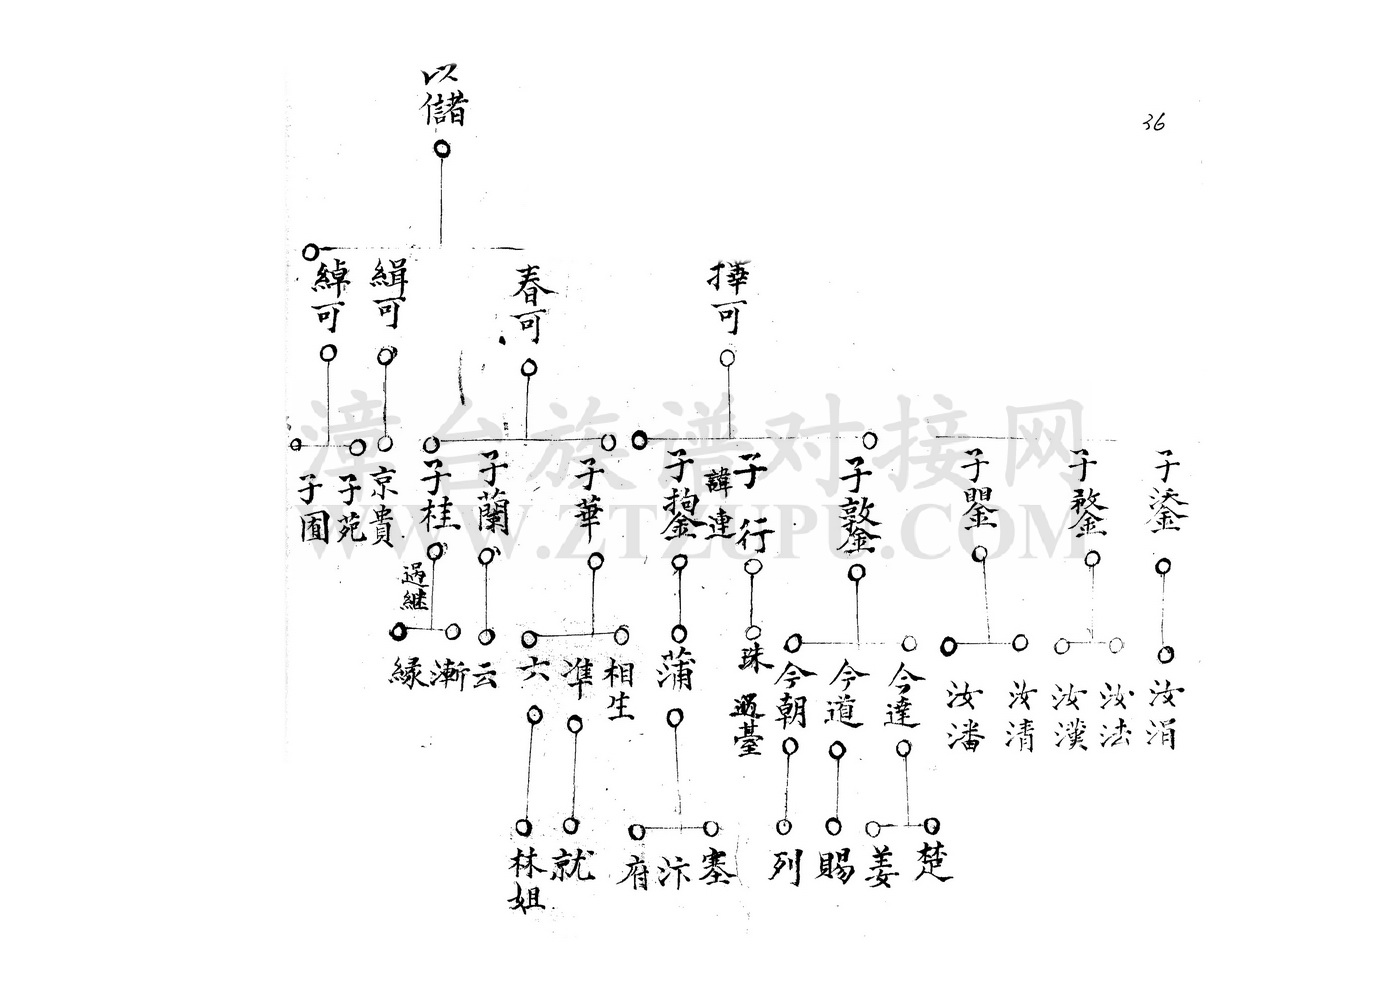 36
以儲
擇可
春可
緝可
綽可
子鋈
子敨
子閶
子敦
子行
諱連
子鈎
子華
子蘭
子桂
京貴
子苑
子囿
過継
汝涓
汝法
汝漢
汝清
汝潘
今達
今道
今朝
珠
過臺
蒲
相生
準
六
云
漸
緣
楚
姜
賜
列
塞
汴
府
就
林姐
漳台族谱对接网
WWW.ZTZUPU.COM